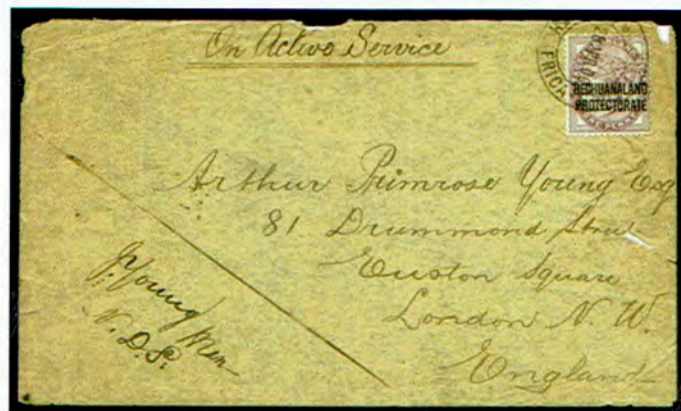 On Active Service
BECHUANALAND
PROTECTORATE
Arthur Primrose Young Esq
81 Drummond Street
Euston Square
London N. W.
England
Young
N.